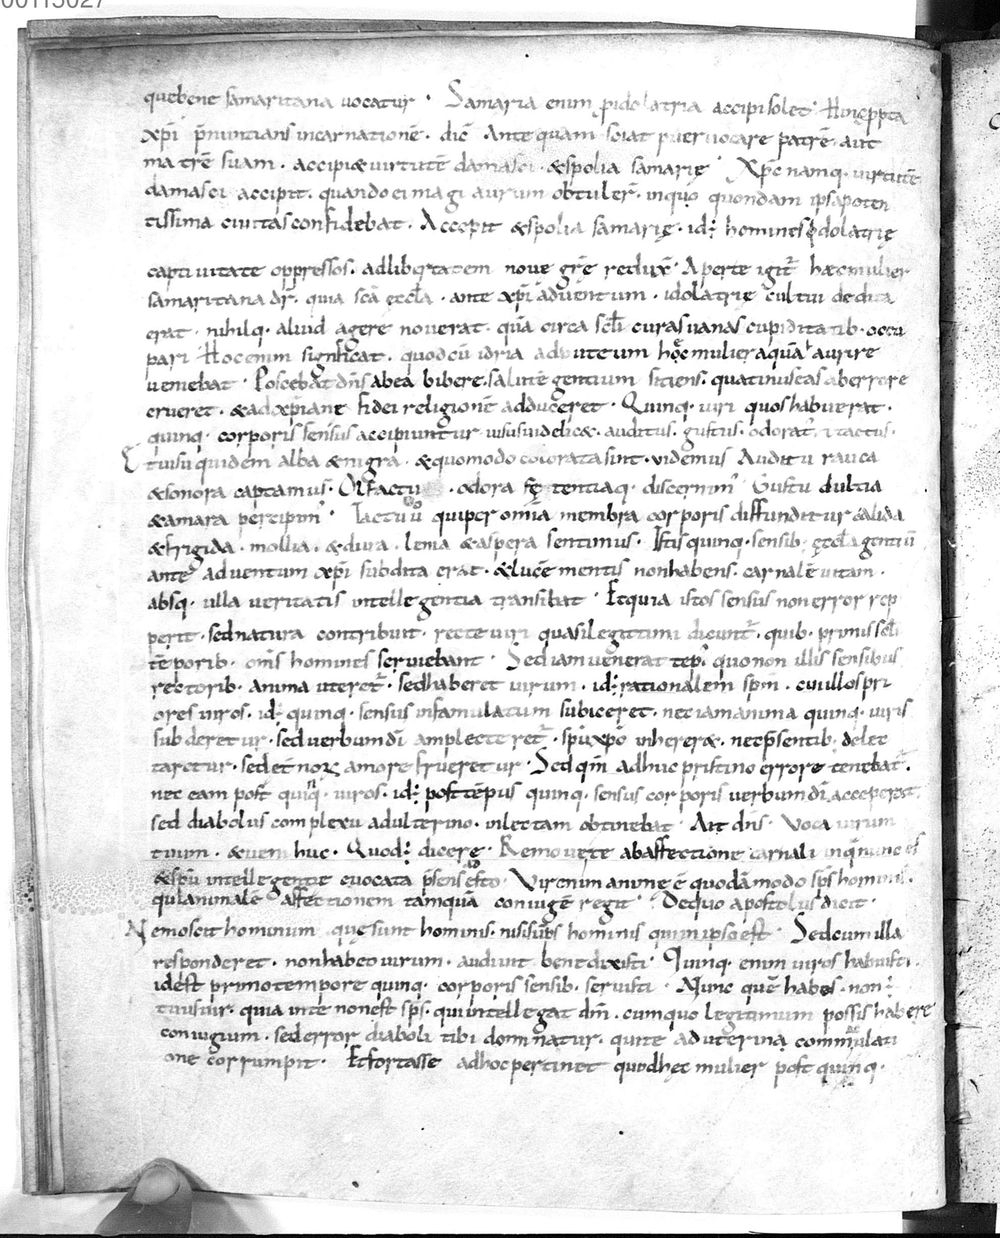 00115027
quebene samaritana uocatur · Samaria enim p idolatria accipi solet · Hinc ppta
xp̄i p̄nuntians incarnationē · dic̄ Ante quam sciat puer uocare patrē aut
matrē suam · accipi& uirtutē damasci · & spolia samarię · Xp̄c namq· uirtutē
damasci accipit · quando ei magi aurum obtuler̄ · in quo quondam ipsa poten
tissima ciuitas confidebat · Accepit & spolia samarię · id÷ homines idolatrię
captiuitate oppressos · ad libertatem noue gr̄e redux̄ · Aperte igit̄ haec mulier
samaritana dr̄ · quia sc̄a ęccl̄a · ante xp̄i aduentum · idolatrię cultui dedita
erat · nihilq· aliud agere nouerat · quā circa sc̄li curas uanas cupiditatib· occu
pari Hoc enim significat · quod cū idria ad puteum hęc mulier aquā aurire
ueniebat · Poscebat dn̄s ab ea bibere · salutē gentium sitiens · quatinus eas ab errore
erueret · & ad xp̄iane fidei religionē adduceret · Quinq· uiri quos habuerat ·
quinq· corporis sensus accipiuntur uisus uidelic& · auditus · gustus · odorat' · & tactus ·
Et uisu quidem alba & nigra · & quomodo colorata sint · videmus Auditu rauca
& sonora captamus · Olfactu · odora fętentiaq· discernim' Gustu dultia
& amara percipim' · Tactu ū qui per omīa membra corporis diffunditur calida
& frigida · mollia · & dura · lenia & aspera sentimus · Istis quinq· sensib· ęccl̄a gentiū
ante aduentum xp̄i subdita erat · & lucē mentis non habens · carnalē uitam ·
absq· ulla ueritatis intellegentia transibat · Et quia istos sensus non error rep
perit · sed natura contribuit · recte uiri quasi legittimi dicunt̄ · quib· primis sc̄li
tēporib· om̄s homines seruiebant · Sed iam uenerat tēp' quo non illis sensibus
rectorib· anima uteret̄ · sed haberet uirum · id÷ rationalem spm̄ · cui illos pri
ores uiros · id÷ quinq· sensus in famulatum subiceret · nec iam anima quinq· uiris
subderetur · sed uerbum dī amplecteret̄ · spū xp̄o inherer& · nec p̄sentib· delec
taretur · sed et̄noꝝ amore frueretur · Sed qm̄ adhuc pristino errore tenebat̄ ·
nec eam post quinq· uiros · id÷ post tēpus quinq· sensus corporis uerbum dī acceperat ·
sed diabolus complexu adulterino · inlectam obtinebat · Ait dn̄s · Voca uirum
tuum · & ueni huc · Quod÷ dicere · Remouete ab affectione carnali
& spū intellegentie euocata p̄sens esto · Vir enim anime ē quodāmodo sps̄ hominis ·
qui animalē affectionem tamquā coniugē regit · De quo apostolus dicit ·
Nemo scit hominum quę sunt hominis · nisi sps̄ hominis qui in ipso est · Sed cum illa
responderet · non habeo uirum · audiuit bene dixisti · Quinq· enim uiros habuisti ·
id est primo tempore quinq· corporis sensib· seruisti · Nunc quē habes · non÷
tuus uir · quia in te non est sps̄ · qui intellegat dm̄ · cum quo legitimum possis habere
coniugium · sed error diaboli tibi dominatur · qui te adulterina commaculati
one corrumpit · Et fortasse adhoc pertinet quod hęc mulier post quinq·